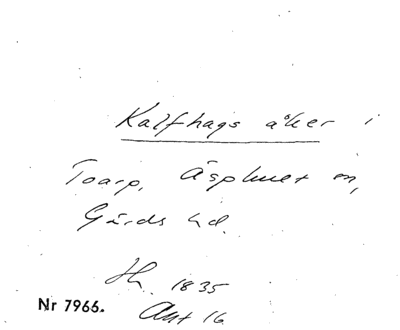 Kalfhags åker i
Toarp, Äsphult sn,
Gärds hd.
Hk. 1835
Akt 16
Nr 7966.